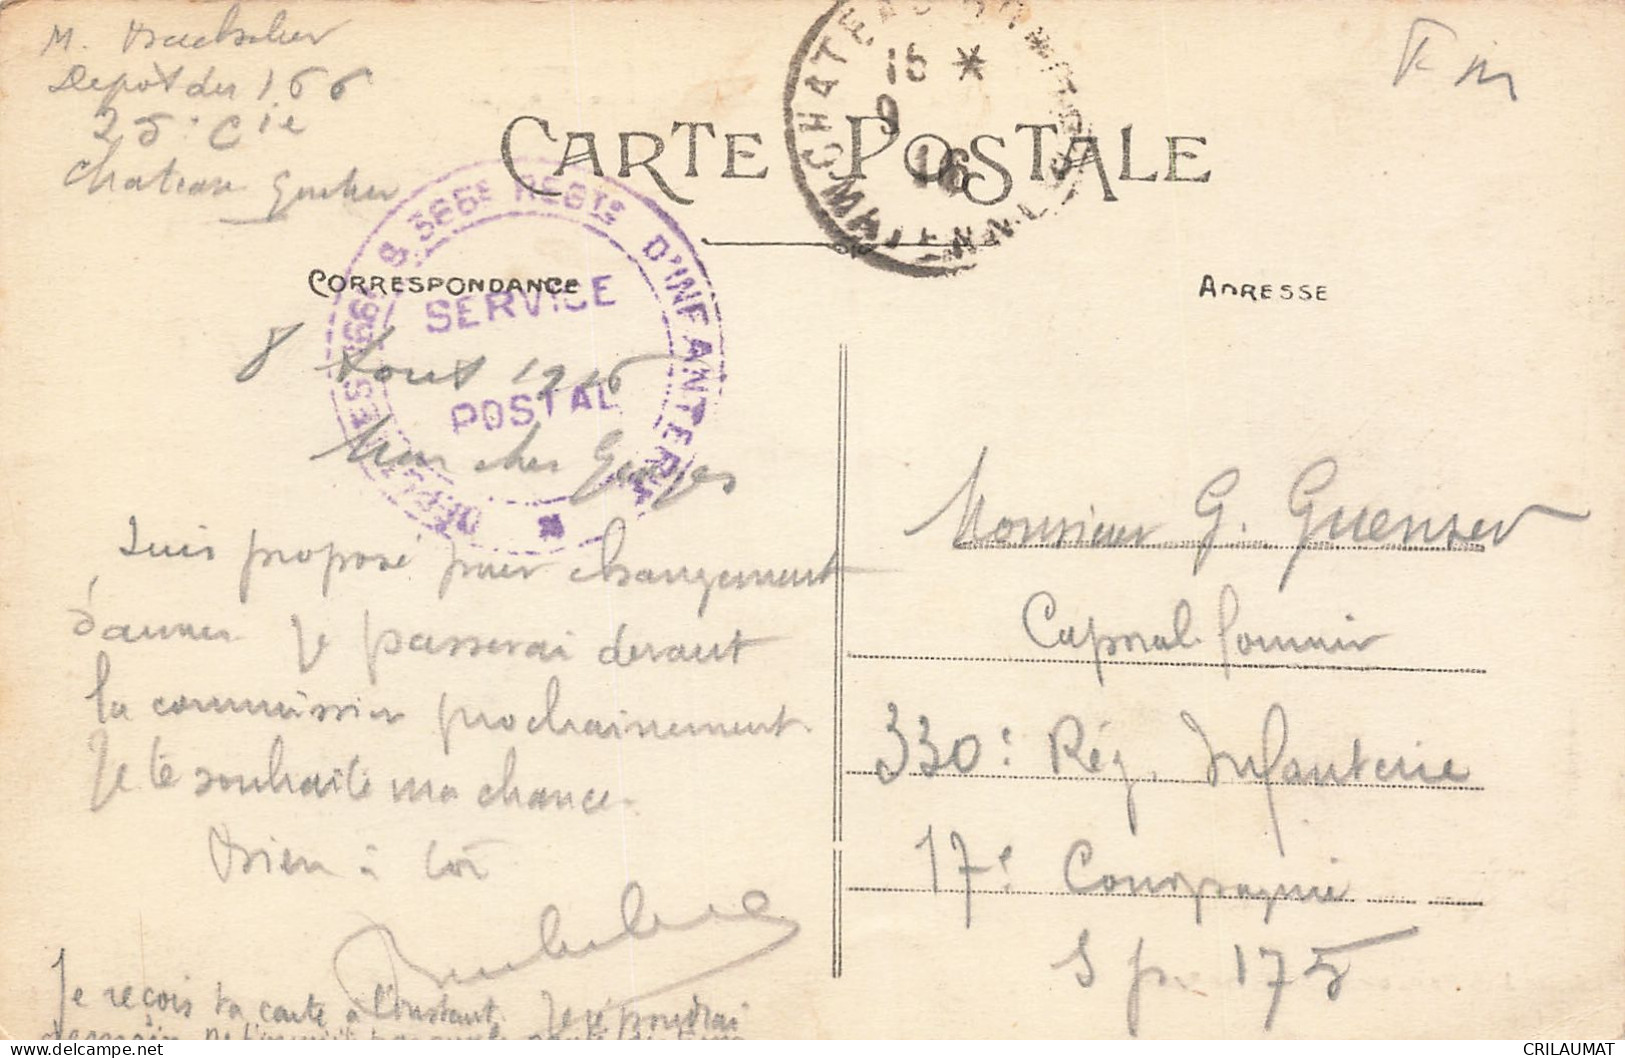 M.
Depot du 166
25e Cie
Chateau Gontier
F M
CARTE POSTALE
16 *
9
16
MAYENNE
DÉPÔT DES 166e & 366e REGTS D'INFANTERIE
SERVICE
POSTAL
CORRESPONDANCE
ADRESSE
8 Aout 1916
Mon cher Georges
Suis proposé pour changement
d'armes. Je passerai devant
la commission prochainement.
Je te souhaite ma chance.
Bien à toi
Je reçois ta carte à l'instant. Je répondrai
demain
Monsieur G. Guenser
Caporal fourrier
330e Rég. Infanterie
17e Compagnie
S p. 175
CRILAUMAT